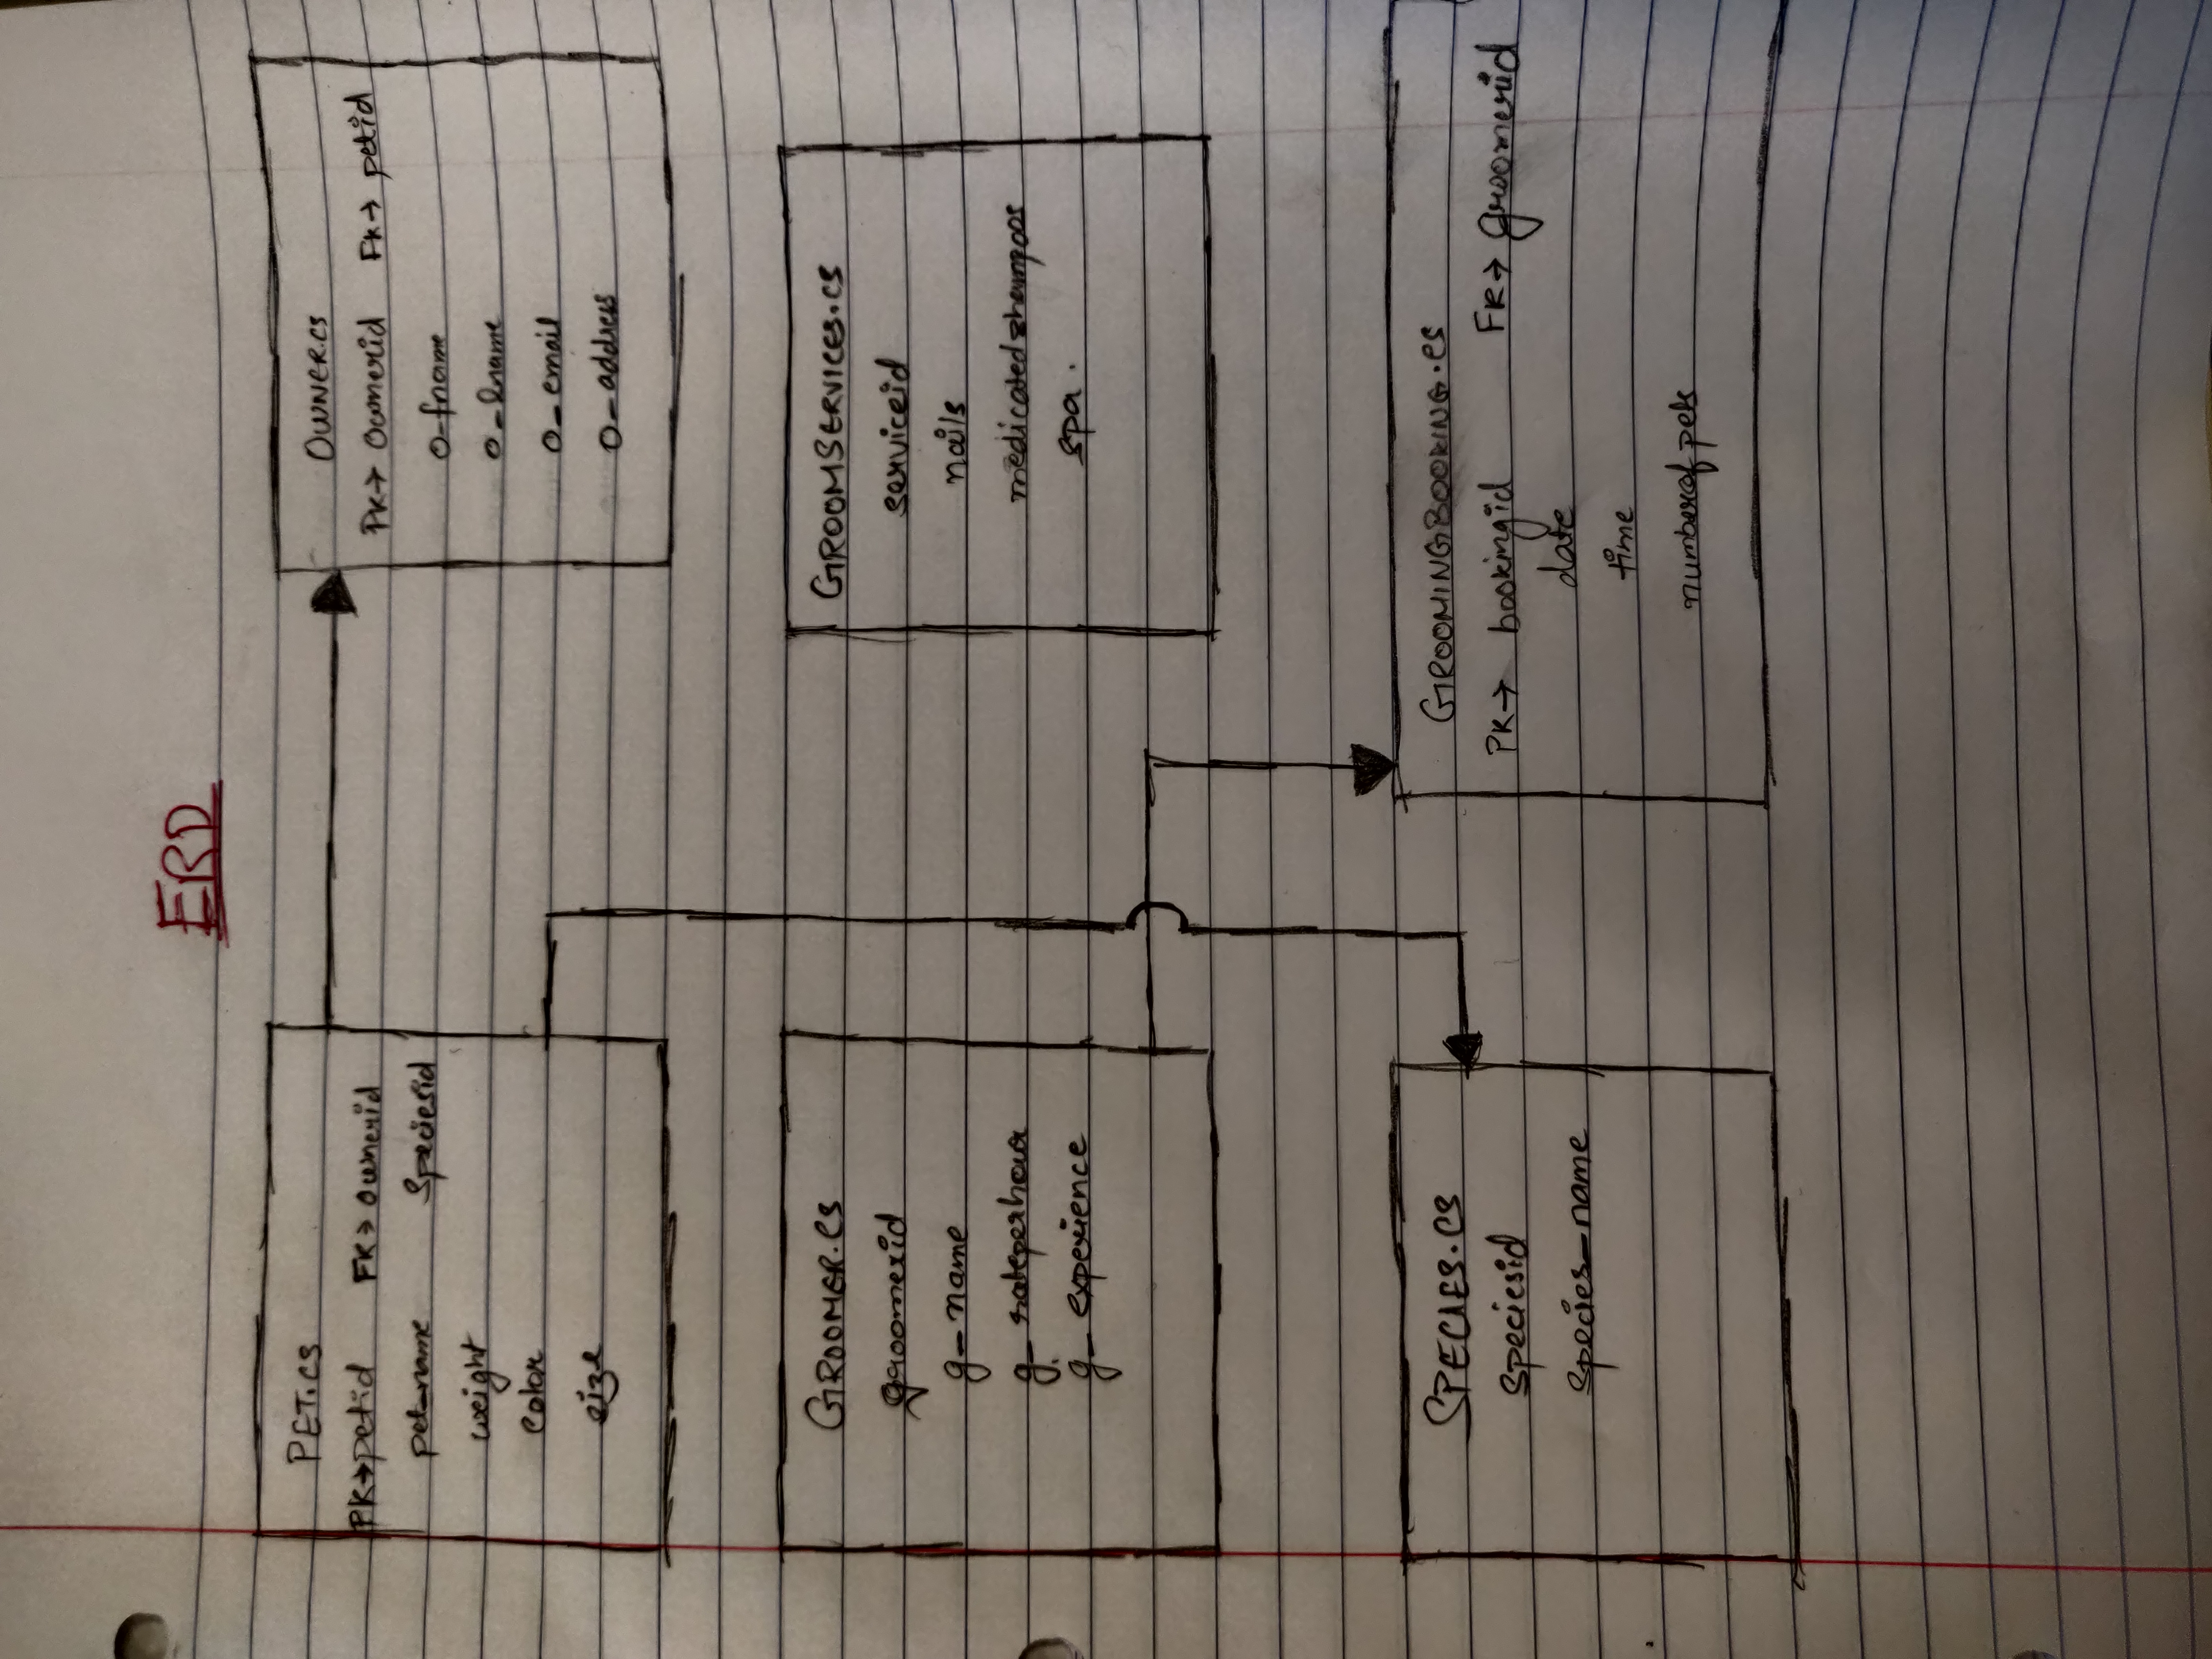 ERD
PET.cs
PK→petid FK→ Ownerid
pet_name Speciesid
weight
Color
size
OWNER.cs
PK→ Ownerid FK→ petid
o-fname
o_lname
o_email
o_address
GROOMER.cs
groomerid
g_name
g_rateperhour
g_experience
GROOMSERVICES.cs
serviceid
nails
medicatedshampoos
spa.
SPECIES.cs
speciesid
species_name
GROOMINGBOOKING.cs
PK→ bookingid FK→ Groomerid
date
time
numberof pets